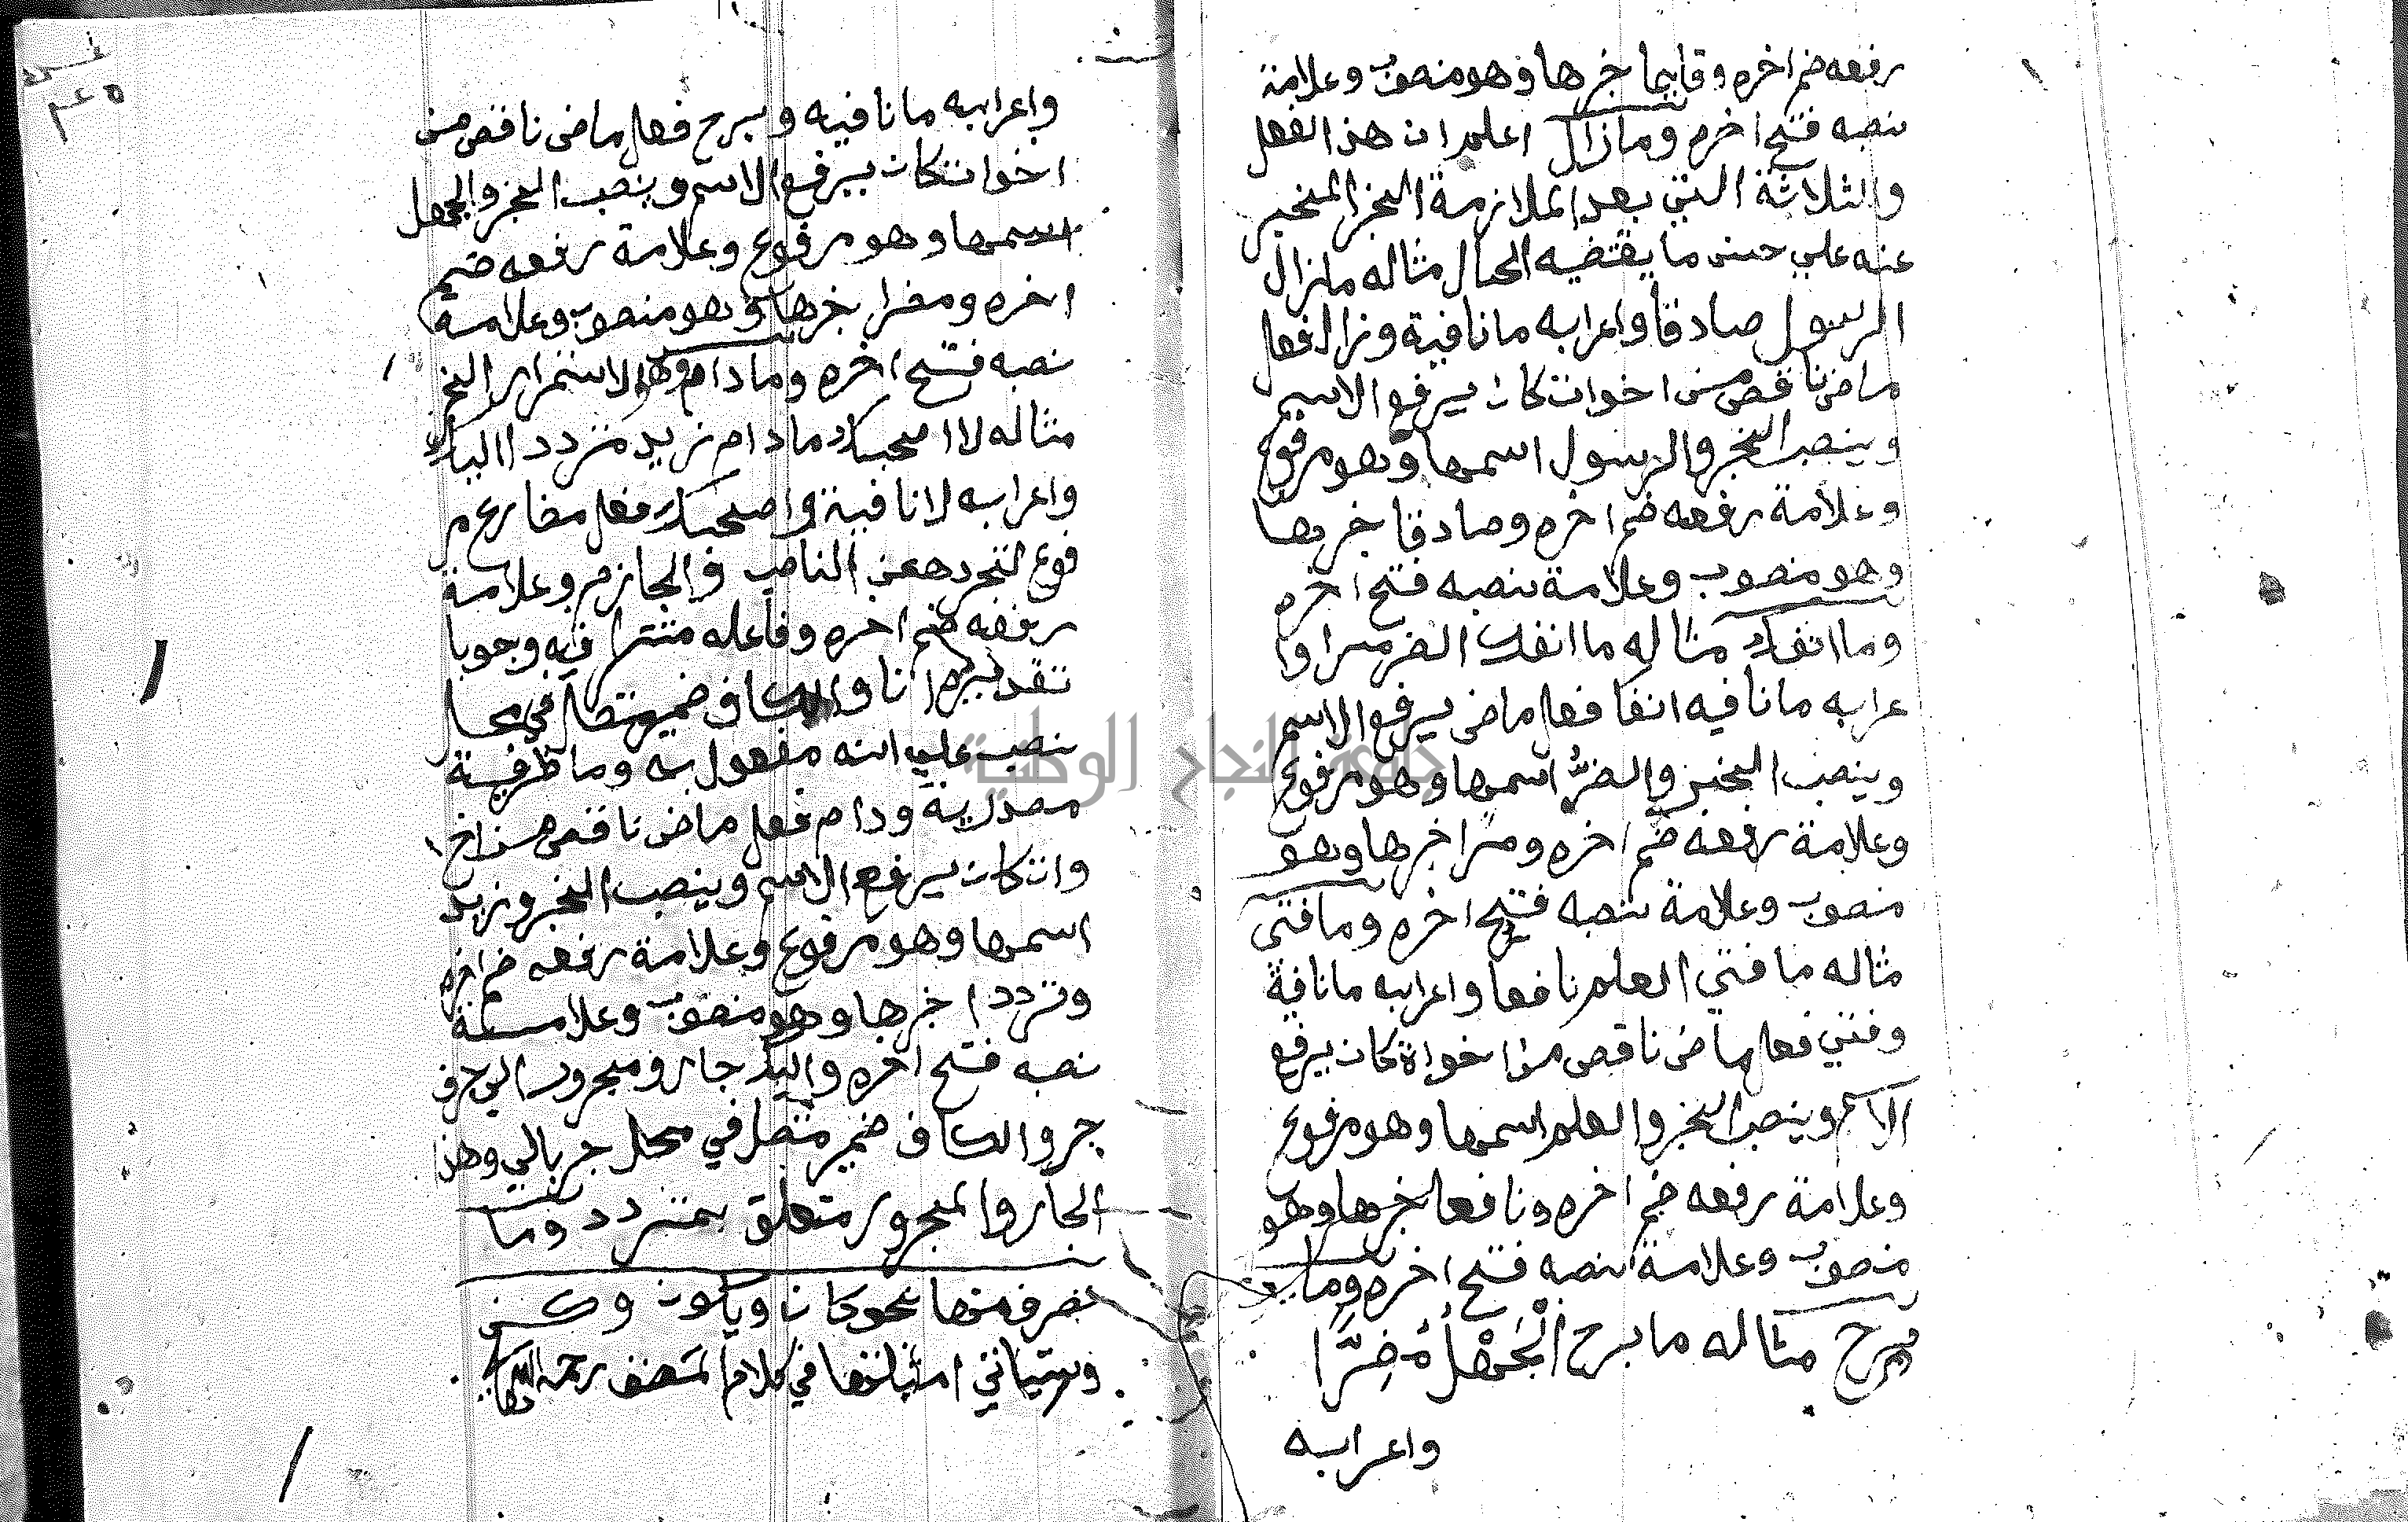 رفعه ضم اخره وقايما خبرها وهو منصوب وعلامة
نصبه فتح اخره ومازال اعلم ان هذا الفعل
والثلاثة التي بعد لملازمة الخبر المخبر
عنه علي حسن ما يقتضيه الحال مثاله مازال
الرسول صادقا واعرابه ما نافية وزال فعل
ماض ناقص من اخوات كان يرفع الاسم
وينصب الخبر والرسول اسمها وهو مرفوع
وعلامة رفعه ضم اخره وصادقا خبرها
وهو منصوب وعلامة نصبه فتح اخره
وما انفك مثاله ما انفك الضر مرا وا
عرابه ما نافيه انفا فعل ماض يرفع الاسم
وينصب الخبر والضرُّ اسمها وهو مرفوع
وعلامة رفعه ضم اخره ومرا خبرها وهو
منصوب وعلامة نصبه فتح اخره وما فتى
مثاله ما فتي العلم نافعا واعرابه ما نافية
وفتي فعل ماض ناقص من اخواة كان يرفع
الاسم وينصب الخبر والعلم اسمها وهو مرفوع
وعلامة رفعه ضم اخره ونافعا خبرها وهو
منصوب وعلامة نصبه فتح اخره وما
برح مثاله ما برح الْجَهْلُ مُضِرًّا
واعرابه
واعرابه ما نافيه وبرح فعل ماض ناقص من
اخوات كان يرفع الاسم وينصب الخبر والجهل
اسمها وهو مرفوع وعلامة رفعه ضم
اخره ومضرا خبرها وهو منصوب وعلامة
نصبه فتح اخره ومادام وهو لاستمرار الخبر
مثاله لا اصحبك مادام زيد متردد االيك
واعرابه لا نافية واصحبك فعل مضارع مر
فوع لتجرده عن الناصب والجازم وعلامة
رفعه ضم اخره وفاعله مستترا فيه وجوبا
تقديره انا والكاف ضمير متصل في محل
نصب علي انه مفعول به وما ظرفية
مصدرية ودام فعل ماض ناقص من اخ
وات كان يرفع الاسم وينصب الخبر وزيد
اسمها وهو مرفوع وعلامة رفعه ضم اخره
وتردد ا خبرها وهو منصوب وعلامة
نصبه فتح اخره واليك جار ومجرور الي حرف
جر والكاف ضمير متصل في محل جر بالي وهذا
الجار والمجرور متعلق بمتردد وما
تصرف منها نحو كان ويكون وكن
وستياتي امثلتها في كلام المصنف رحمه الله تعالى